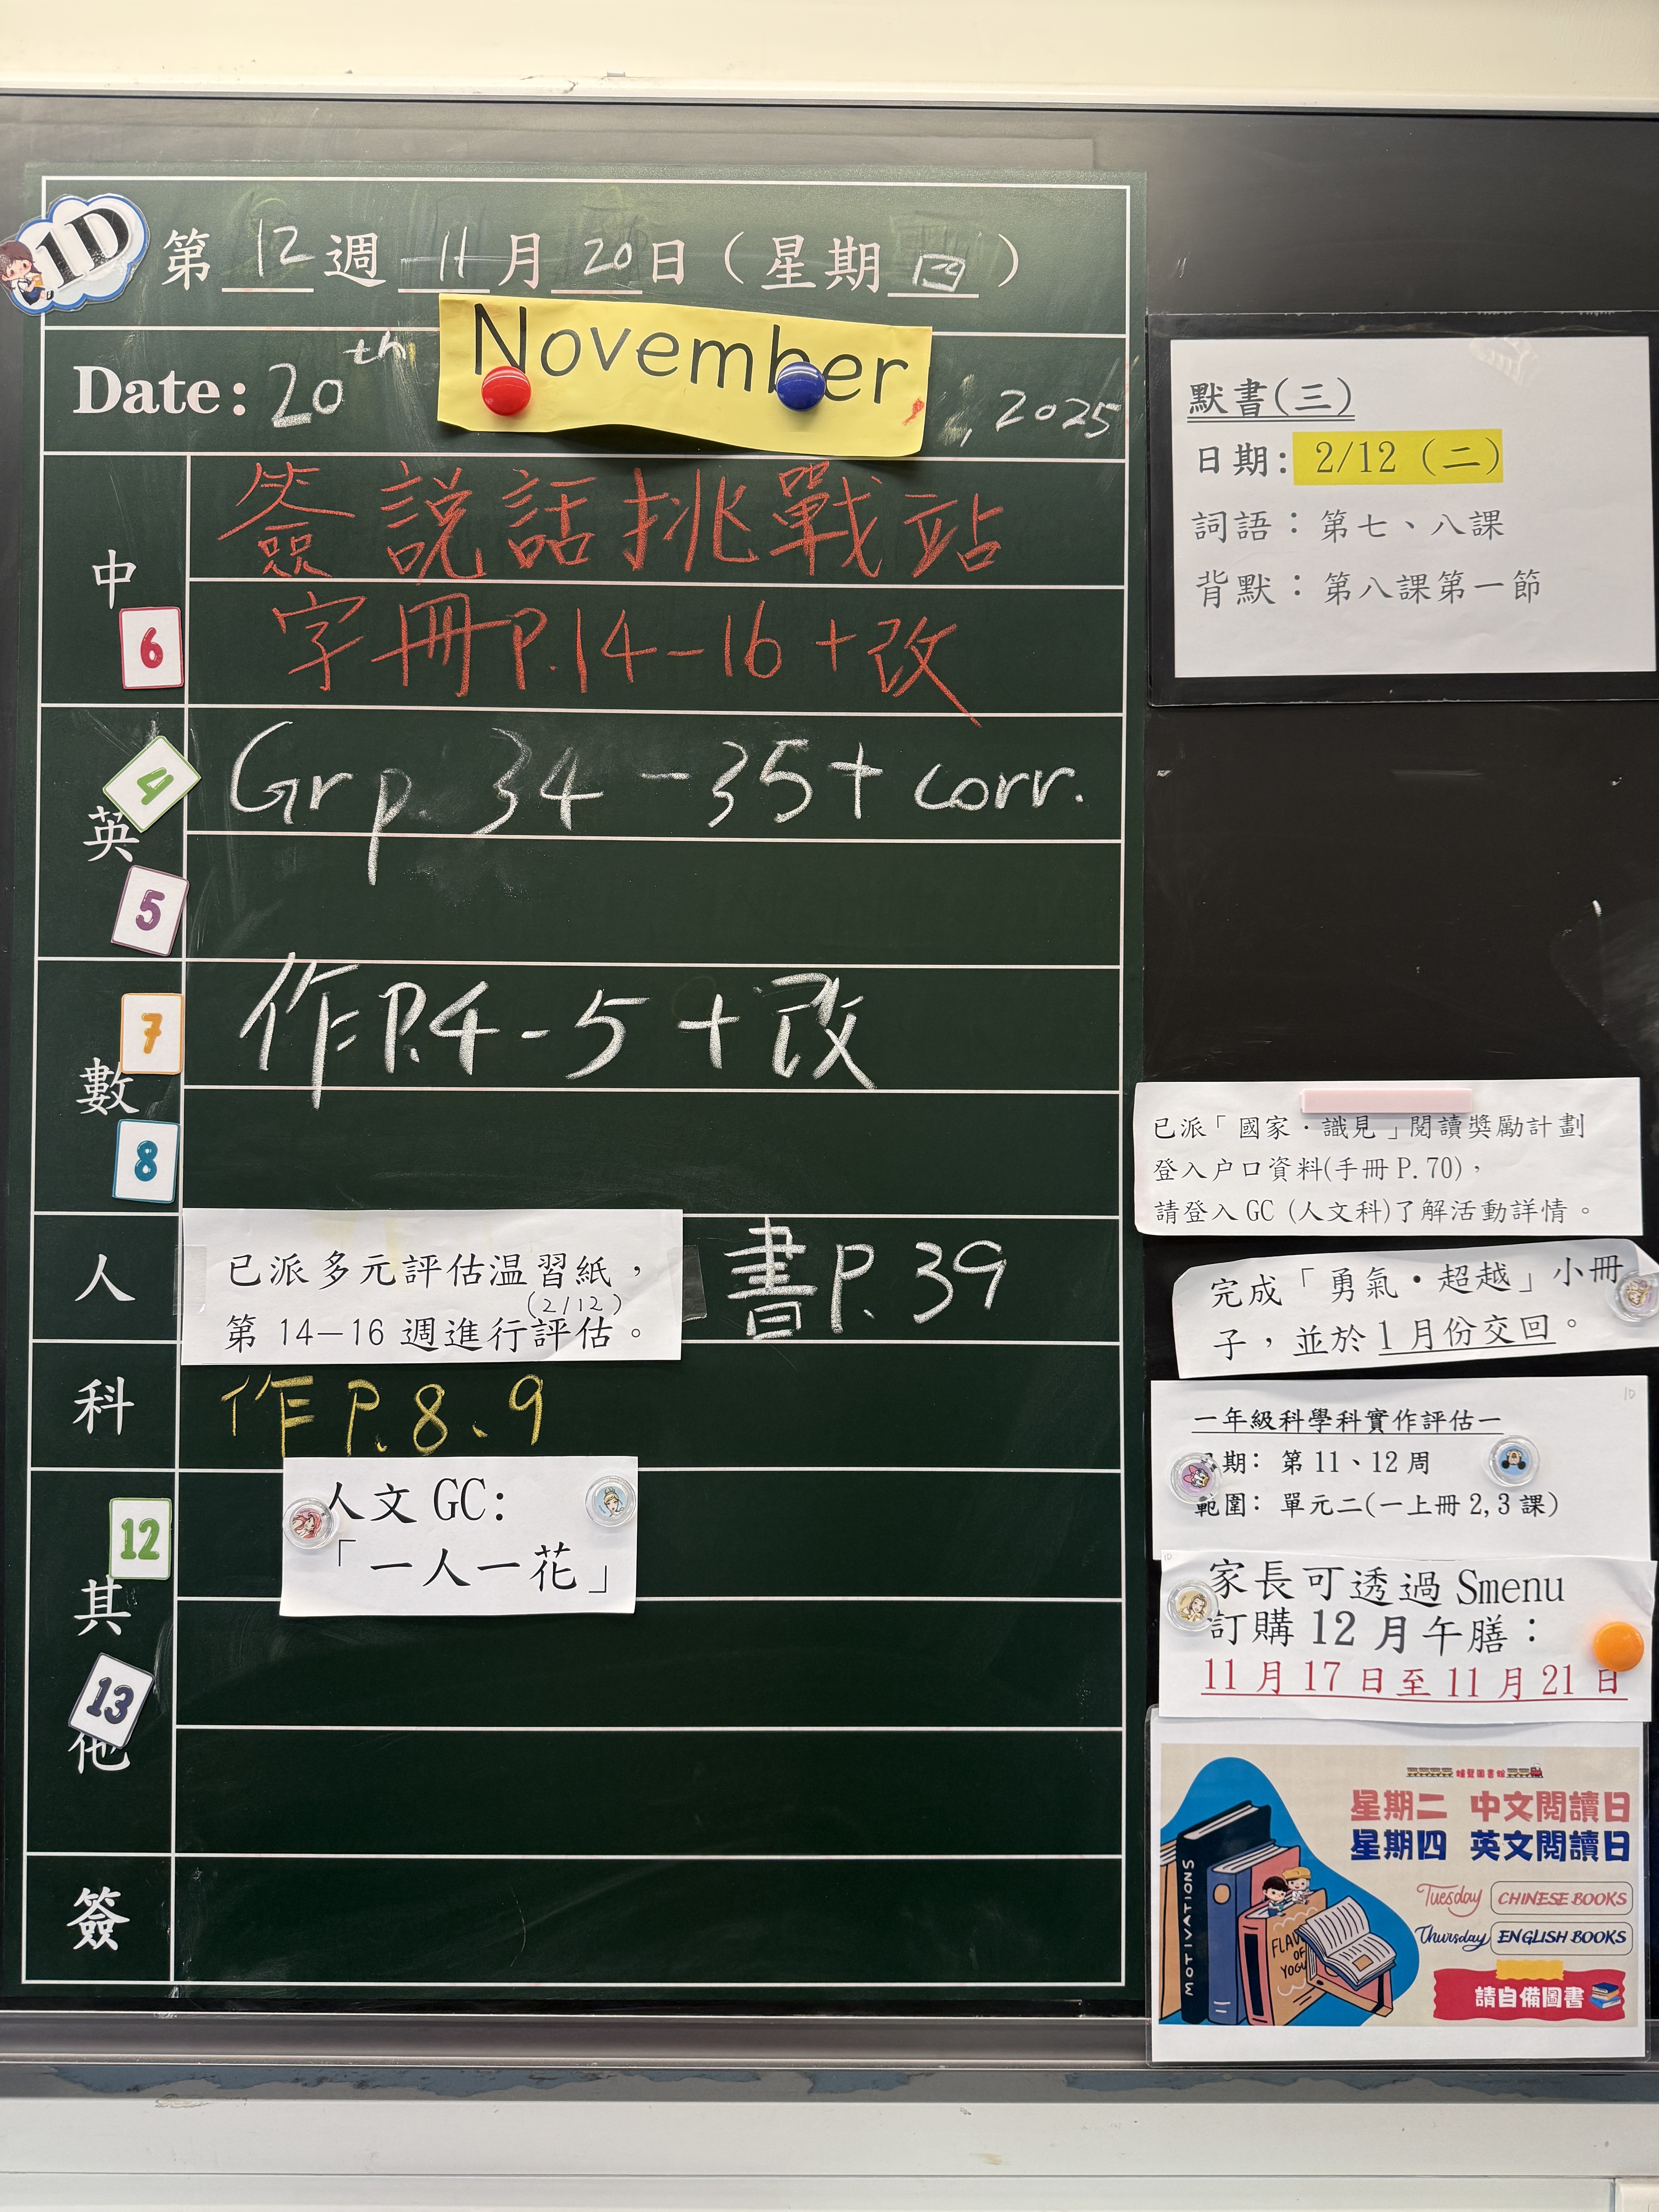 1D
第 12 週 11 月 20 日（星期 四）
Date: 20th November, 2025
中
簽 說話挑戰站
字冊P.14-16+改
6
英
4
5
Gr p. 34-35+ corr.
數
7
8
作P.4-5+改
人
已派多元評估温習紙，
(2/12)
第 14-16 週進行評估。
書P.39
科
作P.8、9
其他
12
13
人文 GC:
「一人一花」
簽
默書(三)
日期: 2/12 (二)
詞語：第七、八課
背默：第八課第一節
已派「國家·識見」閱讀獎勵計劃
登入户口資料(手冊 P.70)，
請登入 GC (人文科)了解活動詳情。
完成「勇氣·超越」小冊
子，並於 1 月份交回。
10
一年級科學科實作評估一
期: 第 11、12 周
範圍: 單元二(一上冊 2,3 課)
10
家長可透過 Smenu
訂購 12 月午膳：
11 月 17 日至 11 月 21 日
星期二 中文閱讀日
星期四 英文閱讀日
Tuesday CHINESE BOOKS
Thursday ENGLISH BOOKS
請自備圖書
MOTIVATIONS